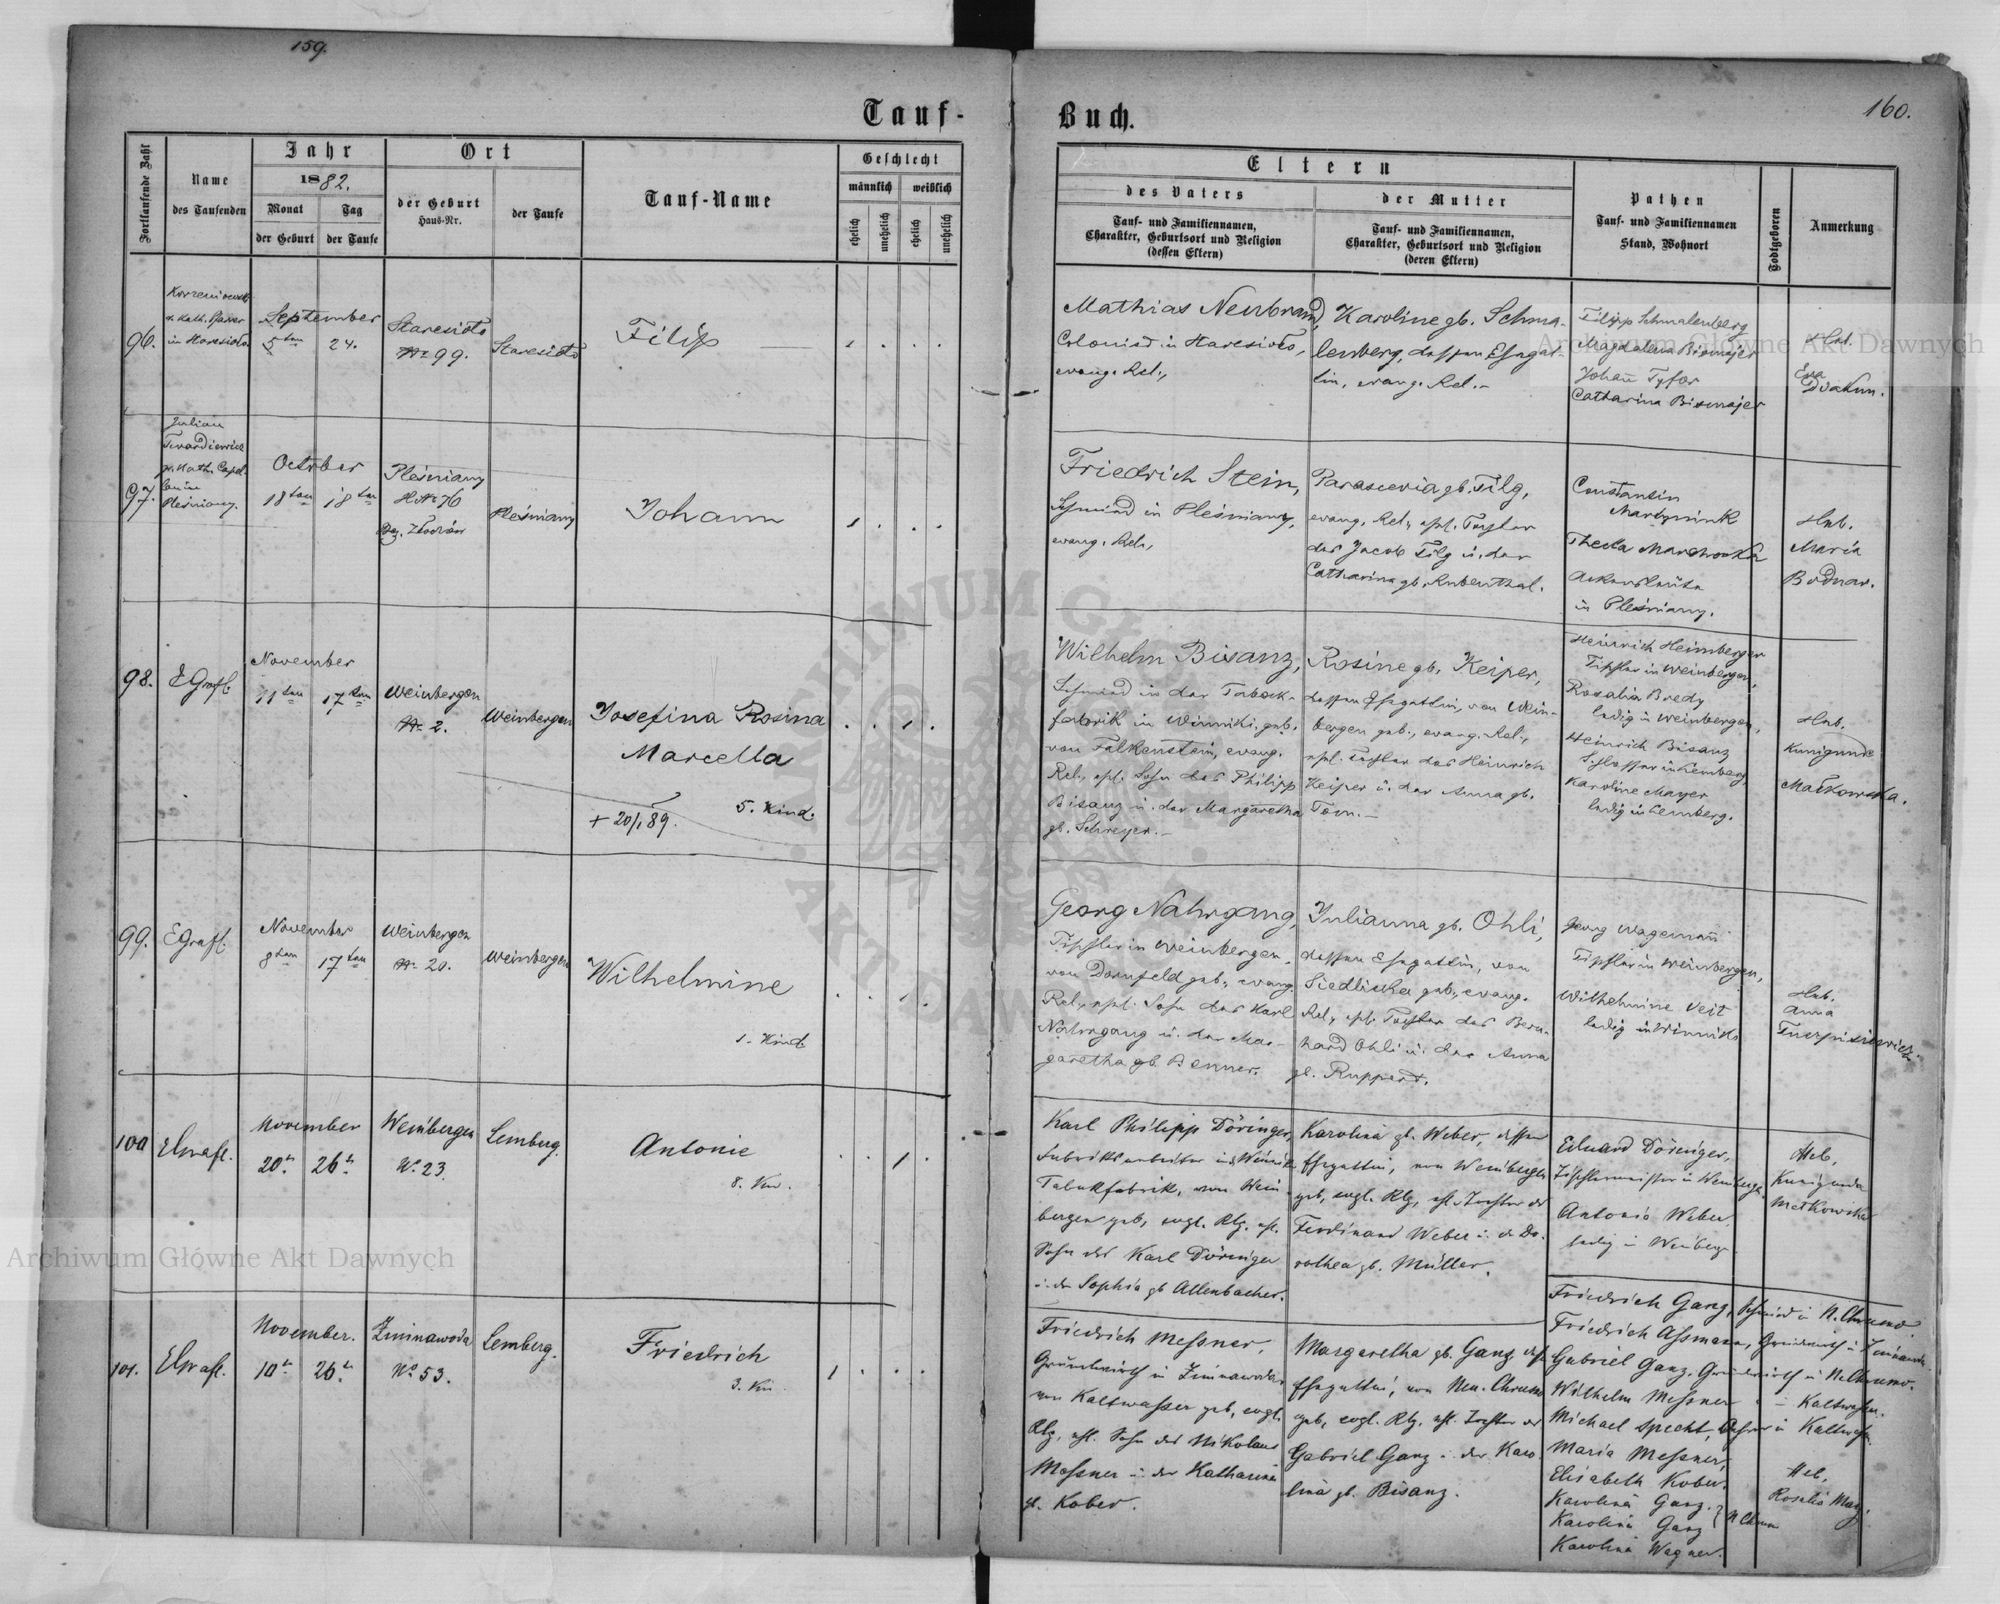 159.
Tauf-
Fortlaufende Zahl
Name
des Taufenden
Jahr
1882.
Monat
der Geburt
Tag
der Taufe
Ort
der Geburt
Haus-Nr.
der Taufe
Tauf-Name
Geschlecht
männlich
weiblich
ehelich
unehelich
ehelich
unehelich
96.
September
5ten
24.
Staresioło
№ 99.
Staresioło
Filip
97.
Julian
Twardiewicz
Plesniany.
October
18ten
18ten
Plesniany
H№ 76
Plesniany
Johann
98.
E Grafl.
November
11ten
17ten
Weinbergen
№ 2.
Weinbergen
Josefina Rosina
Marcella
5. Kind.
+ 20/1 89.
99.
E Grafl.
November
8ten
17ten
Weinbergen
№ 20.
Weinbergen
Wilhelmine
1. Kind
100
E Grafl.
November
20t
26t
Weinbergen
N° 23.
Lemberg.
Antonie
8. Kin.
101.
E Grafl.
November.
10t
26t
Zimnawoda
N° 53.
Lemberg.
Friedrich
3. Kin.
Buch.
160.
Eltern
des Vaters
Tauf- und Familiennamen,
Charakter, Geburtsort und Religion
(dessen Eltern)
der Mutter
Tauf- und Familiennamen,
Charakter, Geburtsort und Religion
(deren Eltern)
Pathen
Tauf- und Familiennamen
Stand, Wohnort
Todtgeboren
Anmerkung
Mathias Neubrand,
Colonist in Staresioło,
evang. Rel.,
Karoline gb. Schma-
lenberg, dessen Ehegat-
tin, evang. Rel.-
Filipp Schmalenberg
Magdalena Bismajer
Johann
Catharina Bismajer
Heb.
Eva
Friedrich Stein,
Schmied in Plesniany,
evang. Rel.,
Parascevia gb. Filg,
evang. Rel., ehl. Tochter
des Jacob Filg u. der
Catharina gb. Rubenthal.
Constantin
Martyniuk
Thecla
Ackersleute
in Plesniany.
Heb.
Maria
Bodnar.
Wilhelm Bisanz,
Schmied in der Taback-
fabrik in Winniki, geb.
von Falkenstein, evang.
Rel., ehl. Sohn des Philipp
Bisanz u. der Margaretha
gb. Schreyer.-
Rosine gb. Keiper,
dessen Ehegattin, von Wein-
bergen geb., evang. Rel.,
ehl. Tochter des Heinrich
Keiper u. der Anna gb.
Tom.-
Heinrich Heimberger
Tischler in Weinbergen,
Rosalia Bredy
ledig in Weinbergen,
Heinrich Bisanz
Schlosser in Lemberg,
Karoline Mayer
ledig in Lemberg.
Heb.
Kunigunde
Małkowska.
Georg Nahrgang,
Tischler in Weinbergen,
von Dornfeld geb., evang.
Rel., ehl. Sohn des Karl
Nahrgang u. der Mar-
garetha gb. Benner.
Julianna gb. Ohli,
dessen Ehegattin, von
Siedliska geb., evang.
Rel., ehl. Tochter des Bern-
hard Ohli u. der Anna
gb. Ruppert.
Georg Wagemann
Tischler in Weinbergen,
Wilhelmine Veit
ledig in Winniki
Heb.
Anna
Karl Philipp Döringer,
Fabriksarbeiter in d. Winnik.
Tabakfabrik, von Wein-
bergen geb, evgl. Rlg. ehl.
Sohn des Karl Döringer
u. der Sophia gb Allenbacher.
Karolina gb. Weber, dessen
Ehegattin, von Weinbergen
geb, evgl. Rlg, ehl. Tochter des
Ferdinand Weber u. d. Do-
rothea gb. Müller.
Eduard Döringer,
Tischlermeister in Weinbergen
Antonia Weber
ledig in Weinberg
Heb,
Kunigunda
Małkowska
Friedrich Messner,
Grundwirth in Zimnawoda,
von Kaltwasser geb, evgl.
Rlg, ehl. Sohn des Nikolaus
Messner u. der Katharina
gb. Kober.
Margaretha gb. Ganz dess.
Ehegattin, von Neu-Chrusno
geb, evgl. Rlg, ehl. Tochter des
Gabriel Ganz u. der Karo-
lina gb. Bisanz.
Friedrich Ganz, Schmied in N. Chrusno.
Friedrich Assmann, Grundwirth in Zimnawoda.
Gabriel Ganz, Grundwirth in N. Chrusno.
Wilhelm Messner " - Kaltwasser.
Michael Specht, Lehrer in Kaltwasser.
Maria Messner,
Elisabeth Kober.
Karolina Ganz.
Karolina Ganz } N Chrusno
Karolina Wagner.
Heb,
Rosalia Manz
ARCHIWUM GŁÓWNE AKT DAWNYCH
Archiwum Główne Akt Dawnych
Archiwum Główne Akt Dawnych